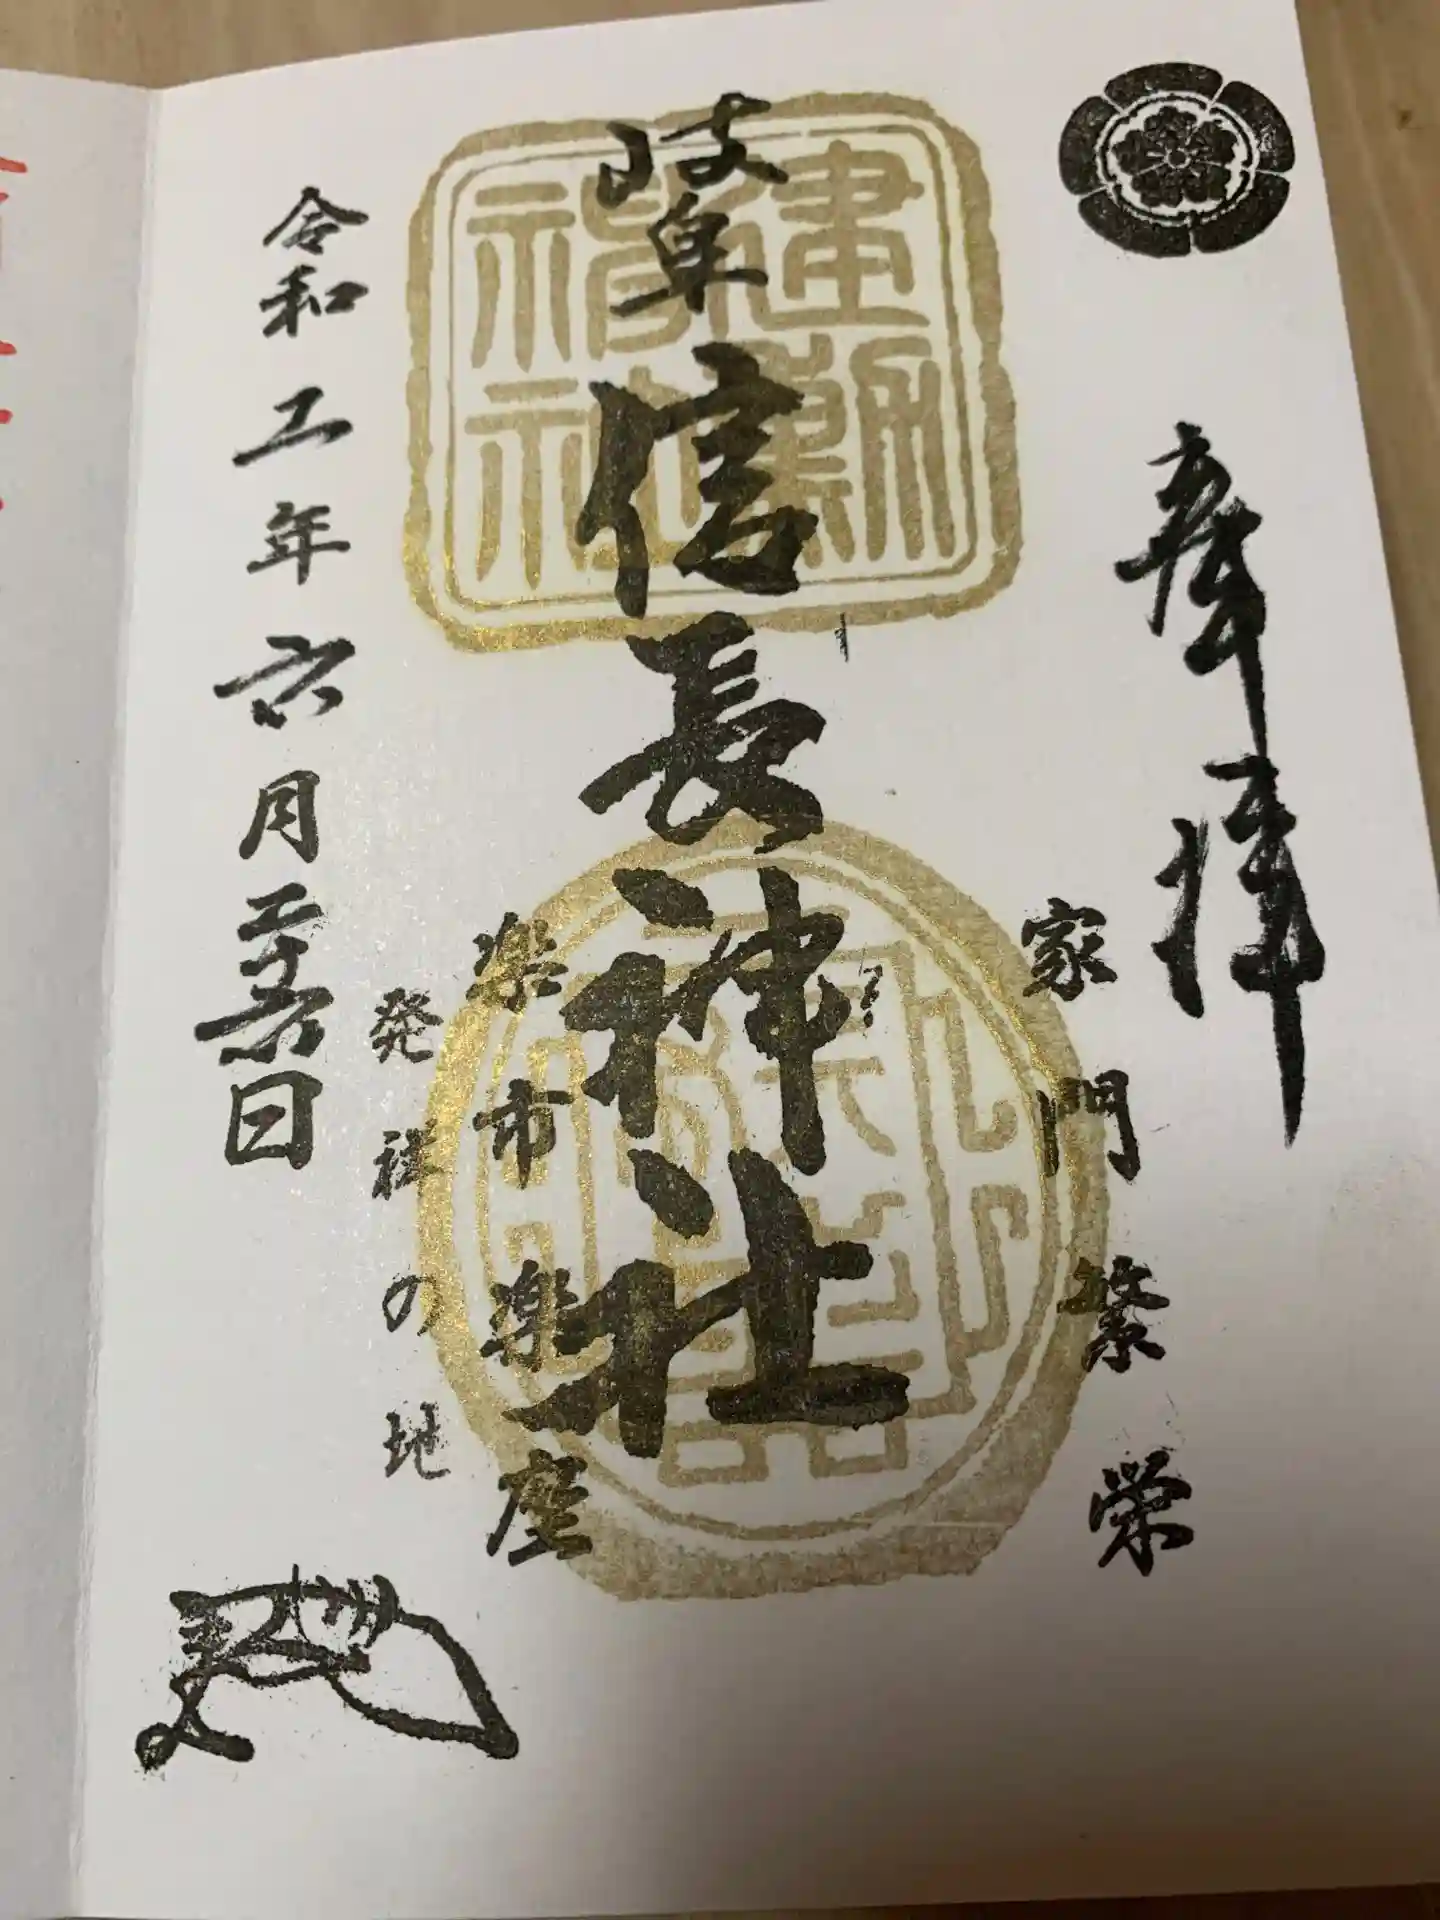 奉拝
家門繁栄
岐阜信長神社
建勲
神社
楽市楽座
発祥の地
令和二年六月二十六日